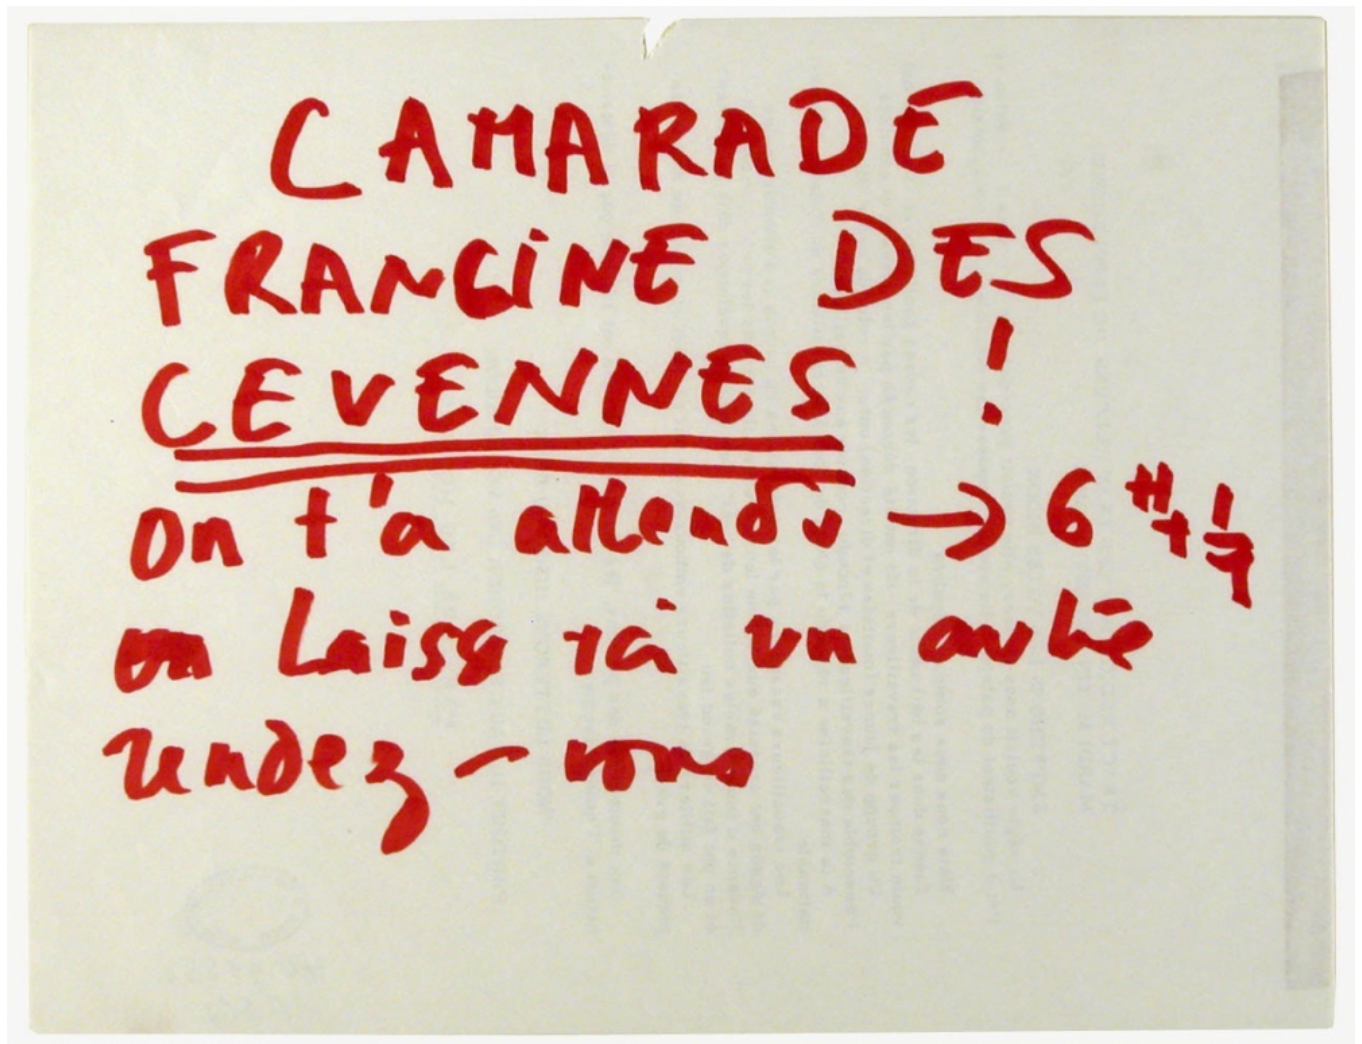 CAMARADE
FRANCINE DES
CEVENNES !
on t'a attendu → 6 H + 1/2
on laisse un autre
rendez-vous